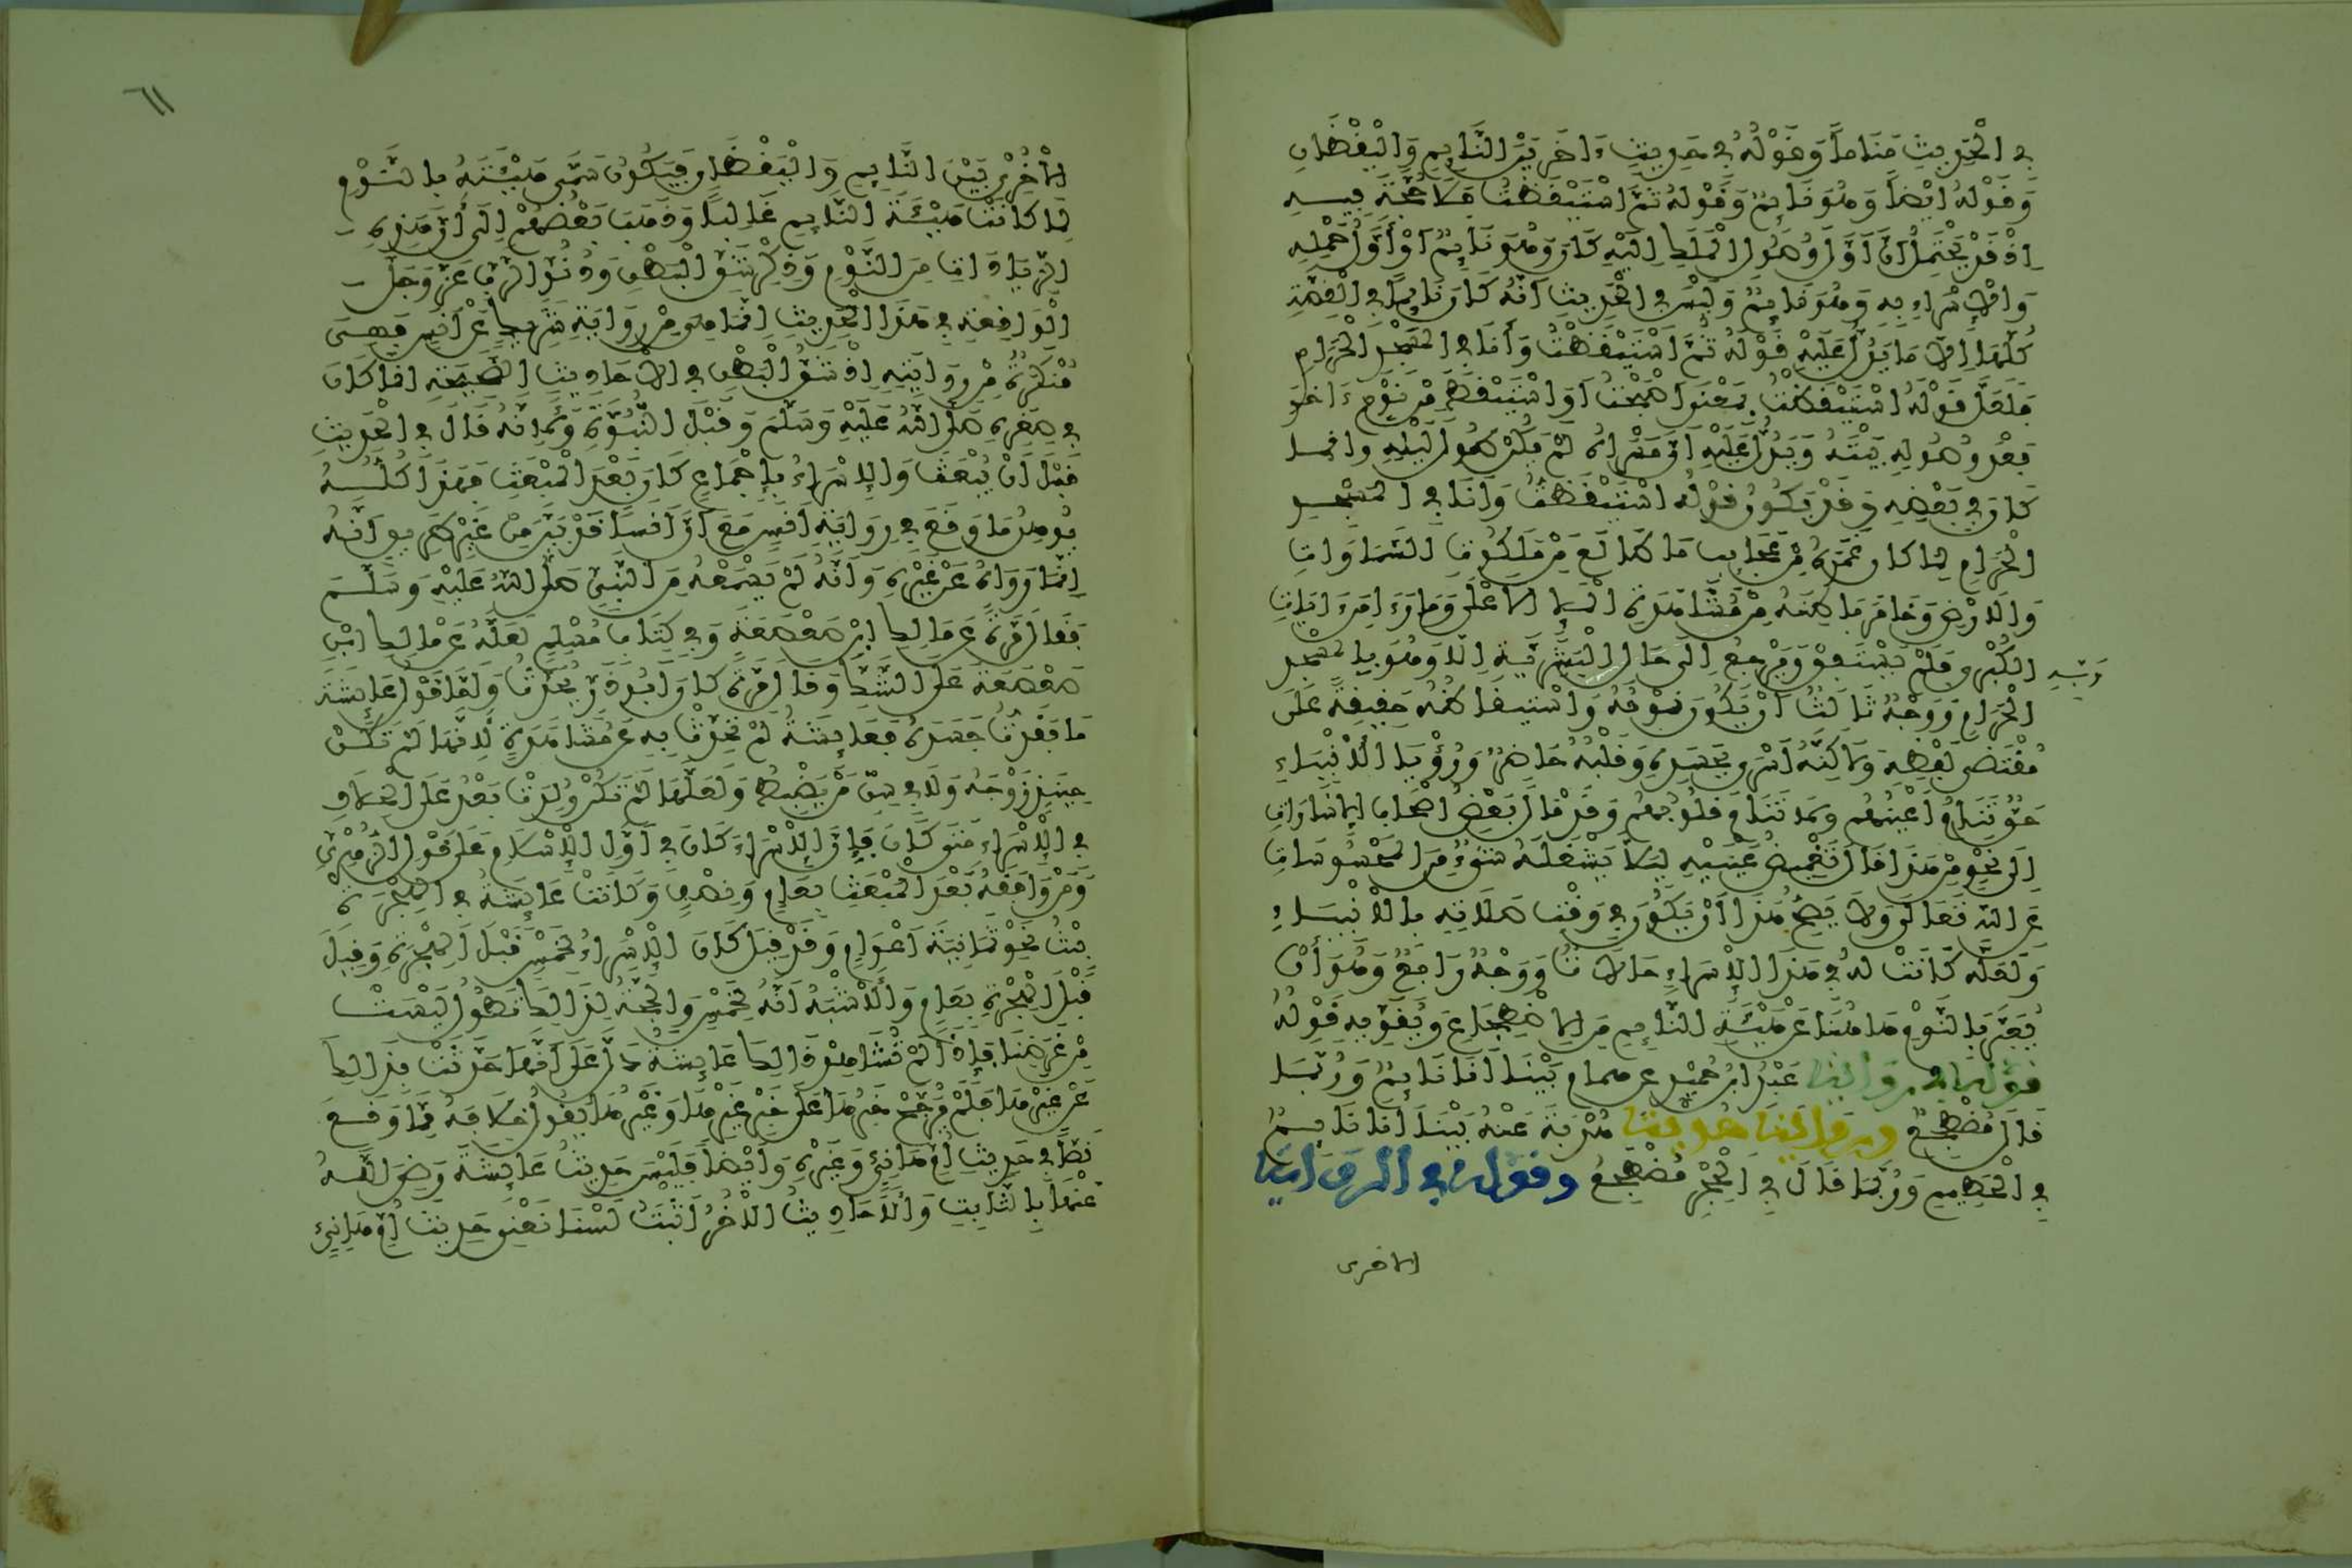 في الْحَدِيثِ مَنَاماً وَقَوْلُهُ في حَدِيثٍ ءَاخَرَ بَيْنَ النَّايِمِ وَالْيَقْظَانِ
وَقَوْلُهُ اَيْضاً وَهُوَ نَايِمٌ وَقَوْلُهُ ثُمَّ اسْتَيْقَظْتُ فَلَا حُجَّةَ فِيهِ
اِذْ قَدْ يَحْتَمِلُ اَنَّ اَوَّلَ وُصُولِ الْمَلَكِ اِلَيْهِ كَانَ وَهُوَ نَايِمٌ اَوْ اَوَّلُ حَمْلِهِ
وَالْاِسْرَاءِ بِهِ وَهُوَ نَايِمٌ وَلَيْسَ في الْحَدِيثِ اَنَّهُ كَانَ نَايِماً في الْقِصَّةِ
كُلِّهَا اِلَّا مَا يَدُلُّ عَلَيْهِ قَوْلُهُ ثُمَّ اسْتَيْقَظْتُ وَأَنَا في الْمَسْجِدِ الْحَرَامِ
فَلَعَلَّ قَوْلَهُ اسْتَيْقَظْتُ بِمَعْنَى اَصْبَحْتُ اَوِ اسْتَيْقَظَ مِنْ نَوْمٍ ءَاخَرَ
بَعْدَ وُصُولِهِ بَيْتَهُ وَيَدُلُّ عَلَيْهِ اَنَّ مَسْرَاهُ لَمْ يَكُنْ طُولَ لَيْلِهِ وانما
كَانَ في بَعْضِهِ وَقَدْ يَكُونُ قَوْلُهُ اسْتَيْقَظْتُ وَاَنَا في الْمَسْجِدِ
الْحَرَامِ لِمَا كَانَ غَمَرَهُ مِنْ عَجَايِبِ مَا طَالَعَ مِنْ مَلَكُوتِ السَّمَاوَاتِ
وَالْاَرْضِ وَخَامَرَ بَاطِنَهُ مِنْ مُشَاهَدَةِ الْمَلَإِ الْاَعْلَى وَمَا رَءَا مِنَ ءَايَاتِ
رَبِّهِ الْكُبْرَى فَلَمْ يَسْتَفِقْ وَيَرْجِعْ اِلَى حَالِ الْبَشَرِيَّةِ اِلَّا وَهُوَ بِالْمَسْجِدِ
الْحَرَامِ وَوَجْهٌ ثَالِثٌ اَنْ يَكُونَ نَوْمُهُ وَاسْتِيقَاظُهُ حَقِيقَةً عَلَى
مُقْتَضَى لَفْظِهِ وَلَاكِنَّهُ اُسْرِيَ بِجَسَدِهِ وَقَلْبُهُ حَاضِرٌ وَرُؤْيَا الْاَنْبِيَاءِ
حَقٌّ تَنَامُ اَعْيُنُهُمْ وَلَا تَنَامُ قُلُوبُهُمْ وَقَدْ مَالَ بَعْضُ اَصْحَابِ الْاِشَارَاتِ
اِلَى نَحْوٍ مِنْ هَذَا قَالَ تَغْمِيضُ عَيْنَيْهِ لِيَلَّا يَشْغَلَهُ شَيْءٌ مِنَ الْمَحْسُوسَاتِ
عَنِ اللهِ تَعَالَى وَلَا يَصِحُّ هَذَا اَنْ يَكُونَ في وَقْتِ صَلَاتِهِ بِالْاَنْبِيَاءِ
وَلَعَلَّهُ كَانَتْ لَهُ في هَذَا الْاِسْرَاءِ حَالَاتٌ وَوَجْهٌ رَابِعٌ وَهُوَ أَنْ
يُعَبَّرَ بِالنَّوْمِ هَاهُنَا عَنْ هَيْئَةِ النَّايِمِ مِنَ الِاضْطِجَاعِ وَيُقَوِّيهِ قَوْلُهُ
في رواية عَبْدِ ابْنِ حُمَيْدٍ عن همام بَيْنَا اَنَا نَايِمٌ وَرُبَّمَا
قَالَ مُضْطَجِعٌ وفي رواية هُدْبَةَ عَنْهُ بَيْنَا أَنَا نَايِمٌ
في الْحَطِيمِ وَرُبَّمَا قَالَ في الْحِجْرِ مُضْطَجِعٌ وقوله في الرواية
الاخرى
٦١
الْاُخْرَى بَيْنَ النَّايِمِ وَالْيَقْظَانِ فَيَكُونُ سَمَّى هَيْئَتَهُ بِالنَّوْمِ
لِمَا كَانَتْ هَيْئَةَ النَّايِمِ غَالِباً وَذَهَبَ بَعْضُهُمْ اِلَى أَنَّ هَذِهِ
الزِّيَادَاتِ مِنَ النَّوْمِ وَذِكْرِ شَقِّ الْبَطْنِ وَدُنُوِّ الرَّبِّ عَزَّ وَجَلَّ
الْوَاقِعَةِ في هَذَا الْحَدِيثِ اِنَّمَا هِيَ مِنْ رِوَايَةِ شَرِيكٍ عَنْ اَنَسٍ فَهِيَ
مُنْكَرَةٌ مِنْ رِوَايَتِهِ اِذْ شَقُّ الْبَطْنِ في الْاَحَادِيثِ الصَّحِيحَةِ اِنَّمَا كَانَ
في صِغَرِهِ صَلَّى اللهُ عَلَيْهِ وَسَلَّمَ وَقَبْلَ النُّبُوَّةِ وَلِاَنَّهُ قَالَ في الْحَدِيثِ
قَبْلَ أَنْ يُبْعَثَ وَالْاِسْرَاءُ بِإِجْمَاعٍ كَانَ بَعْدَ الْمَبْعَثِ فَهَذَا كُلُّهُ
يُوهِنُ مَا وَقَعَ في رِوَايَةِ اَنَسٍ مَعَ اَنَّ اَنَساً قَدْ بَيَّنَ مِنْ غَيْرِ طَرِيقٍ اَنَّهُ
اِنَّمَا رَوَاهُ عَنْ غَيْرِهِ وَاَنَّهُ لَمْ يَسْمَعْهُ مِنَ النَّبِيِّ صَلَّى اللهُ عَلَيْهِ وَسَلَّمَ
فَقَالَ مَرَّةً عَنْ مَالِكِ ابْنِ صَعْصَعَةَ وَفي كِتَابِ مُسْلِمٍ لَعَلَّهُ عَنْ مَالِكِ ابْنِ
صَعْصَعَةَ عَلَى الشَّكِّ وَقَالَ مَرَّةً كَانَ اَبُو ذَرٍّ يُحَدِّثُ وَاَمَّا قَوْلُ عَايِشَةَ
مَا فَقَدْتُ جَسَدَهُ فَعَايِشَةُ لَمْ تُحَدِّثْ بِهِ عَنْ مُشَاهَدَةٍ لِاَنَّهَا لَمْ تَكُنْ
حِينَئِذٍ زَوْجَهُ وَلَا في سِنِّ مَنْ يَضْبِطُ وَلَعَلَّهَا لَمْ تَكُنْ وُلِدَتْ بَعْدُ عَلَى الْخِلَافِ
في الْاِسْرَاءِ مَتَى كَانَ فَإِنَّ الْاِسْرَاءَ كَانَ في اَوَّلِ الْاِسْلَامِ عَلَى قَوْلِ الزُّهْرِيِّ
وَمَنْ وَافَقَهُ بَعْدَ الْمَبْعَثِ بِعَامٍ وَنِصْفٍ وَكَانَتْ عَايِشَةُ في الْهِجْرَةِ
بِنْتُ نَحْوِ ثَمَانِيَةِ اَعْوَامٍ وَقَدْ قِيلَ كَانَ الْاِسْرَاءُ لِخَمْسٍ قَبْلَ الْهِجْرَةِ وَقِيلَ
قَبْلَ الْهِجْرَةِ بِعَامٍ وَالْاَشْبَهُ اَنَّهُ لِخَمْسٍ وَالْحُجَّةُ لِذَالِكَ تَطُولُ لَيْسَتْ
مِنْ غَرَضِنَا فَإِذَا لَمْ تُشَاهِدْ ذَالِكَ عَايِشَةُ دَلَّ عَلَى اَنَّهَا حَدَّثَتْ بِذَالِكَ
عَنْ غَيْرِهَا فَلَمْ يُرَجَّحْ خَبَرُهَا عَلَى خَبَرِ غَيْرِهَا وَغَيْرُهَا يَقُولُ خِلَافَهُ مِمَّا وَقَعَ
نَصّاً في حَدِيثِ اُمِّ هَانِئٍ وَغَيْرِهِ وَاَيْضاً فَلَيْسَ حَدِيثُ عَايِشَةَ رَضِيَ اللهُ
عَنْهَا بِالثَّابِتِ وَالْاَحَادِيثُ الْاُخَرُ اَثْبَتُ لَسْنَا نَعْنِي حَدِيثَ اُمِّ هَانِئٍ